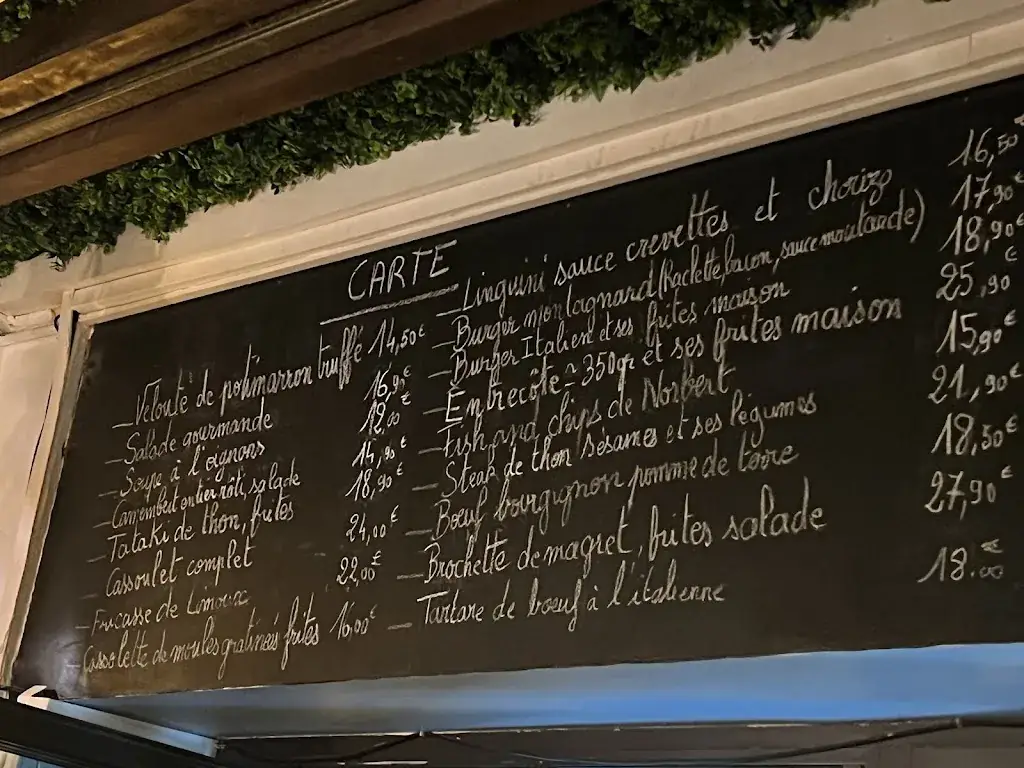 CARTE
– Velouté de potimarron truffé 14,50€
– Salade gourmande 16,90€
– Soupe à l'oignons 12,00€
– Camembert entier rôti, salade 14,90€
– Tataki de thon, frites 18,90€
– Cassoulet complet 24,00€
– Fricasse de Limoux 22,00€
– Cassolette de moules gratinées frites 16,00€
– Linguini sauce crevettes et chorizo 16,50€
– Burger montagnard (Raclette, bacon, sauce moutarde) 17,90€
– Burger Italien et ses frites maison 18,90€
– Entrecôte ~ 350gr et ses frites maison 25,90€
– Fish and chips de Norbert 15,90€
– Steak de thon sésames et ses légumes 21,90€
– Bœuf bourgignon pomme de terre 18,50€
– Brochette de magret, frites salade 27,90€
– Tartare de bœuf à l'italienne 18.00€